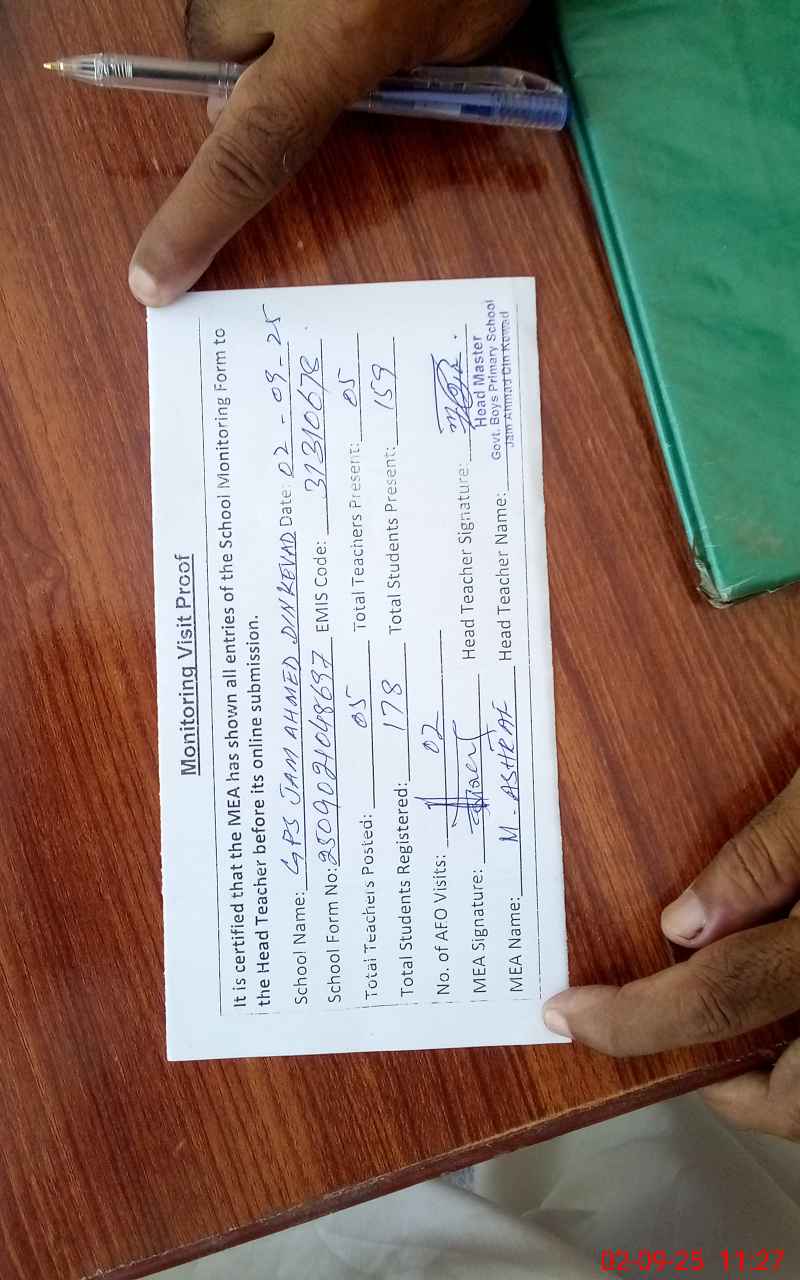 Monitoring Visit Proof
It is certified that the MEA has shown all entries of the School Monitoring Form to
the Head Teacher before its online submission.
School Name: GPS JAM AHMED DIN KEVAD Date: 02-09-25
School Form No: 2509021048697 EMIS Code: 31310678
Total Teachers Posted: 05 Total Teachers Present: 05
Total Students Registered: 178 Total Students Present: 159
No. of AEO Visits: 02
MEA Signature: Head Teacher Signature:
MEA Name: M. ASHRAF Head Teacher Name:
Head Master
Govt. Boys Primary School
Jam Ahmad Din Kewad
02-09-25 11:27